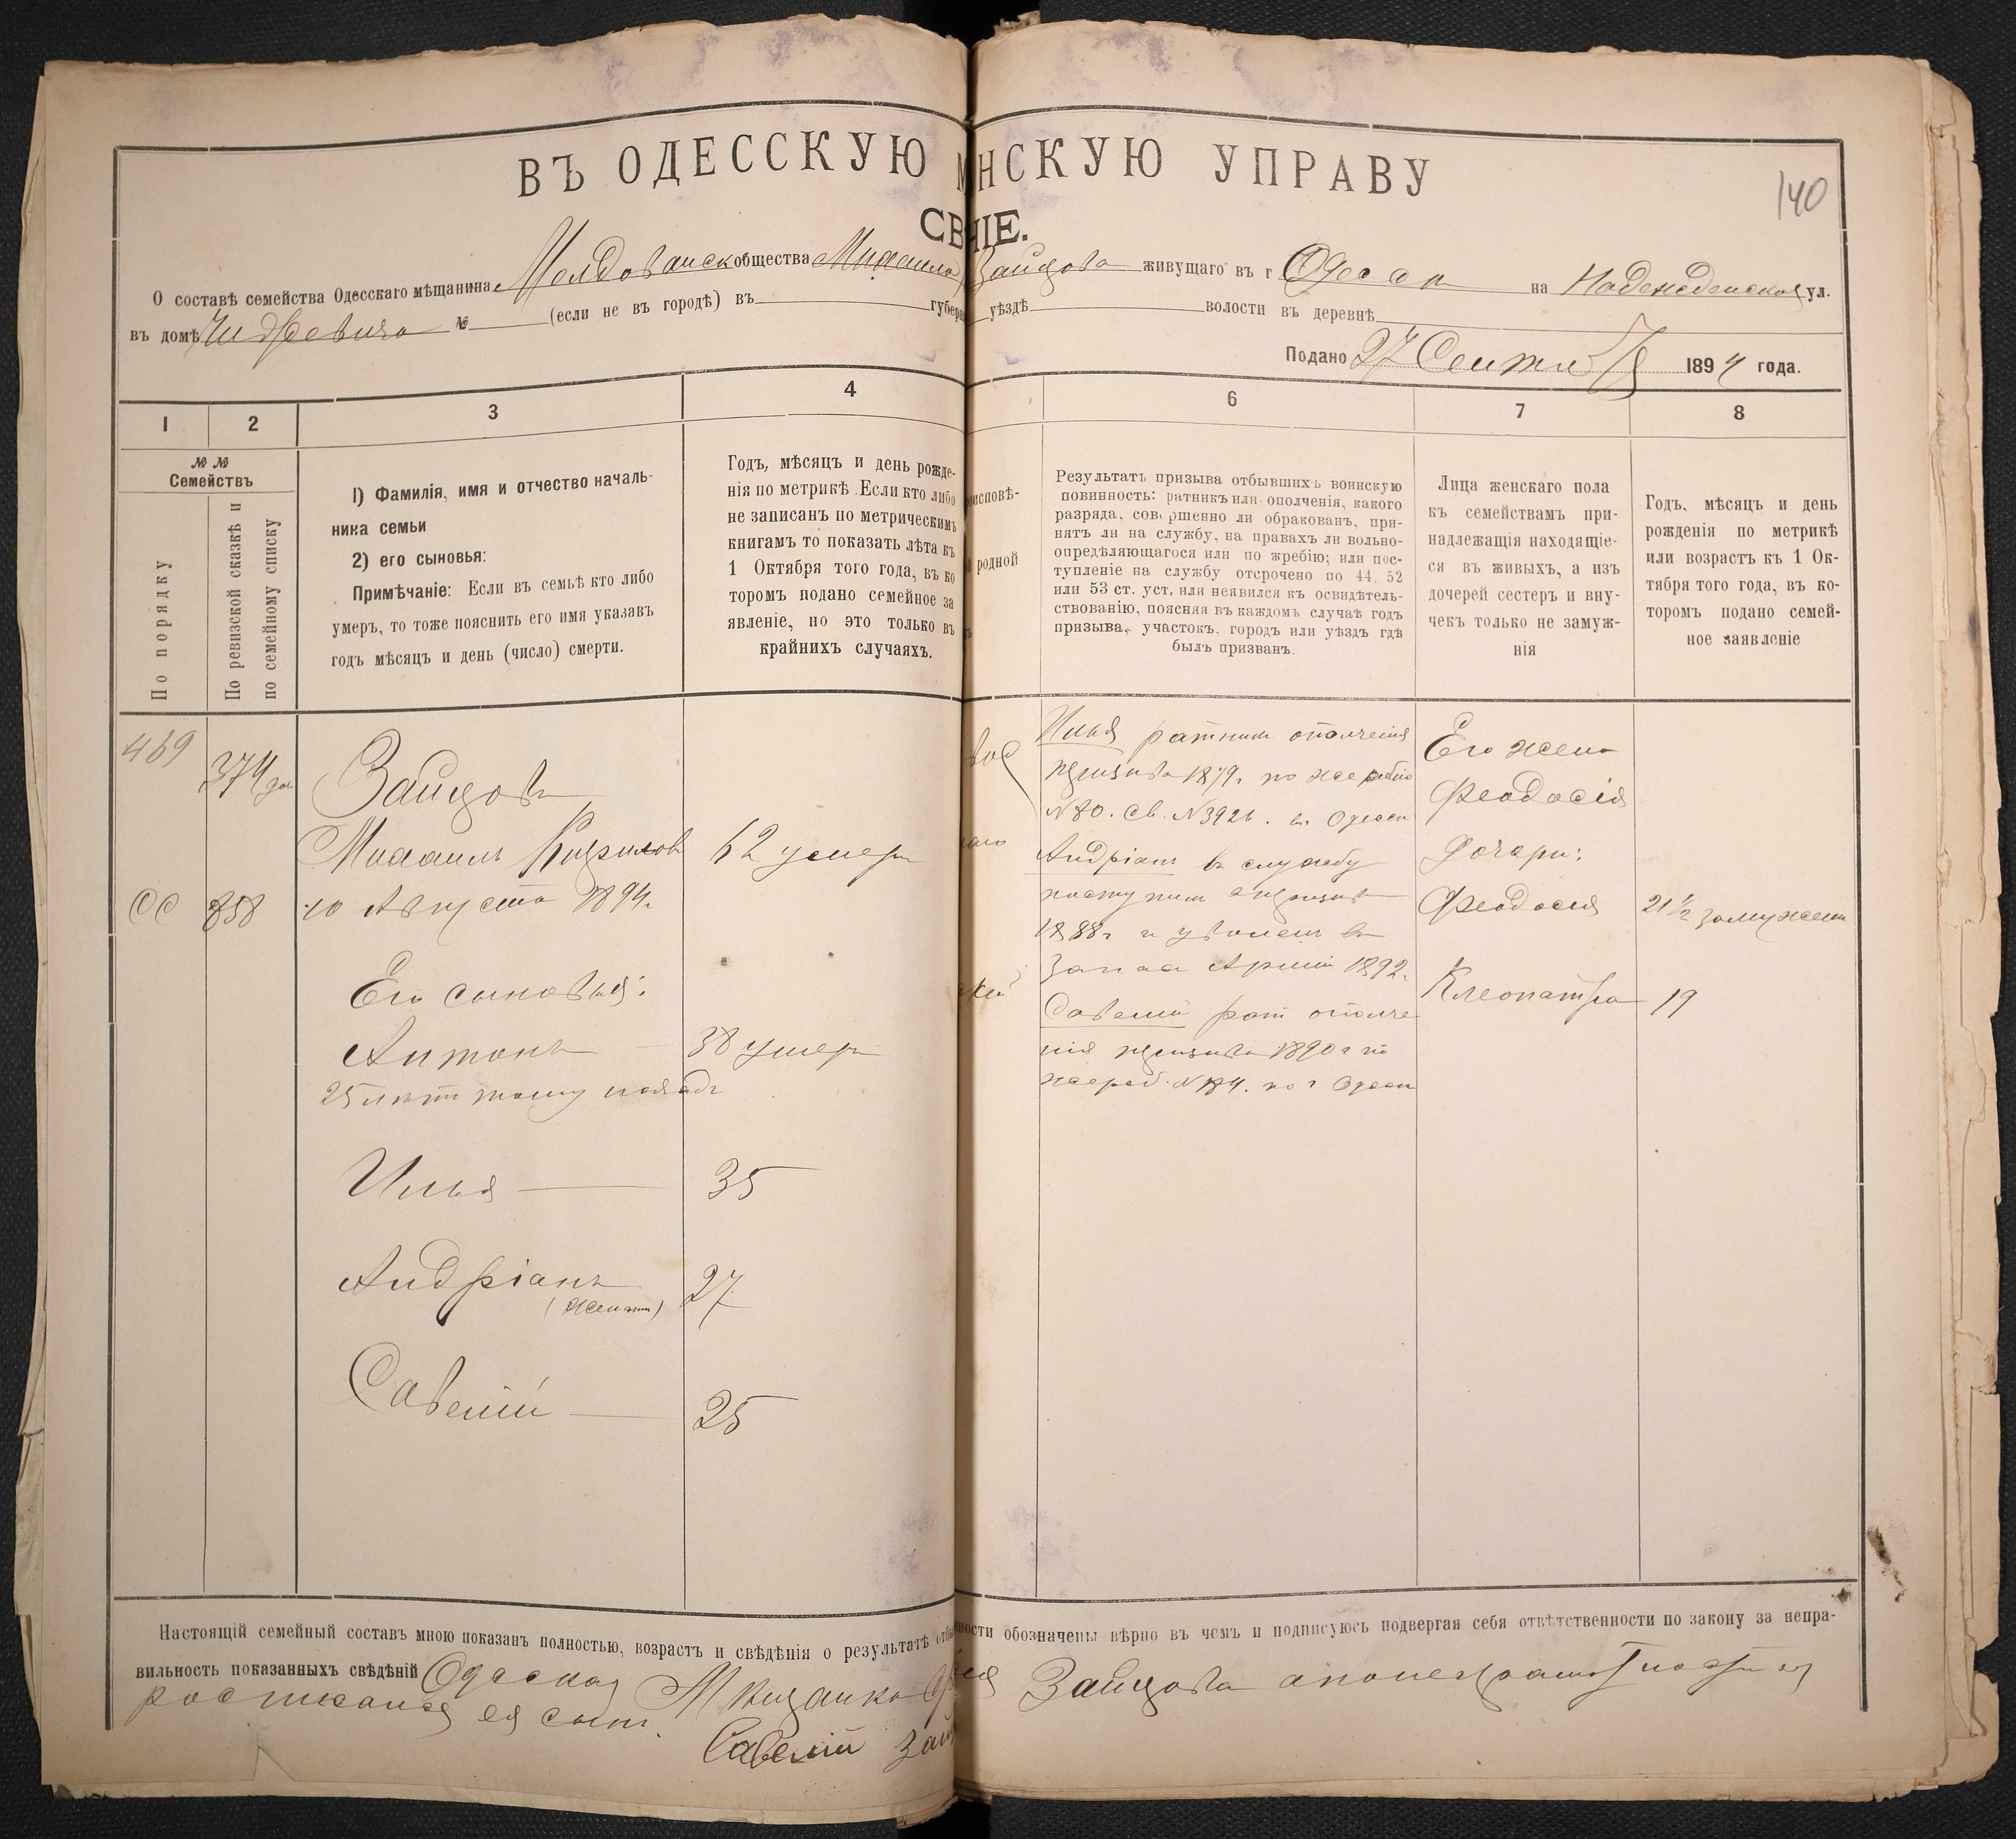 ВЪ ОДЕССКУЮ М НСКУЮ УПРАВУ
140
СВ НІЕ.
О составѣ семейства Одесскаго мѣщанина Молдованск общества Михаила Зайцова живущаго въ г Одессѣ на Надеждинской ул.
въ домѣ № (если не въ городѣ) въ губерн уѣздѣ волости въ деревнѣ
Подано 27 Сентяб 1894 года.
1 2 3 4 6 7 8
№ № Семействъ
По порядку
По ревизской сказкѣ и
по семейному списку
1) Фамилія, имя и отчество началь-
ника семьи
2) его сыновья:
Примѣчаніе: Если въ семьѣ кто либо
умеръ, то тоже пояснить его имя указавъ
годъ мѣсяцъ и день (число) смерти.
Годъ, мѣсяцъ и день рожде-
нія по метрикѣ. Если кто либо
не записанъ по метрическимъ
книгамъ то показать лѣта къ
1 Октября того года, въ ко
торомъ подано семейное за
явленіе, но это только въ
крайнихъ случаяхъ.
исповѣ-
родной
Результатъ призыва отбывшихъ воинскую
повинность: ратникъ или ополченія, какого
разряда, совершенно ли обракованъ, при-
нятъ ли на службу, на правахъ ли вольно-
опредѣляющагося или по жребію; или пос-
тупленіе на службу отсрочено по 44, 52
или 53 ст. уст. или неявился къ освидѣтель-
ствованію, поясняя въ каждомъ случаѣ годъ
призыва, участокъ, городъ или уѣздъ гдѣ
былъ призванъ.
Лица женскаго пола
къ семействамъ при-
надлежащія находящіе-
ся въ живыхъ, а изъ
дочерей сестеръ и вну-
чекъ только не замуж-
нія
Годъ, мѣсяцъ и день
рожденія по метрикѣ
или возрастъ къ 1 Ок-
тября того года, въ ко-
торомъ подано семей-
ное заявленіе
469
374
Зайцовъ
Михаилъ Кирилов 62 умеръ
СС 858 10 Августа 1894г.
Его сыновья:
Антонъ 38 умеръ
25 лѣтъ тому назадъ
Илья 35
Андріанъ 27
(женатъ)
Савелій 25
Илья ратник ополченія
призыва 1879г. по жеребію
№ 80. Св. № 3926. въ Одессѣ
Андріанъ въ службу
поступил в призывъ
1888г и уволенъ въ
Запас Арміи 1892г.
Савелій рат ополче
нія призыва 1890 г по
жереб. № 184. по г Одессѣ
Его жена
Феодосія
Дочери:
Феодосія 21½ замужем
Клеопатра 19
Настоящій семейный составъ мною показанъ полностью, возрастъ и свѣдѣнія о результатѣ отбы ности обозначены вѣрно въ чемъ и подписуюсь подвергая себя отвѣтственности по закону за непра-
вильность показанныхъ свѣдѣній Одеская Мѣщанка Зайцова
росписался ея сынъ.
Савелій Зай